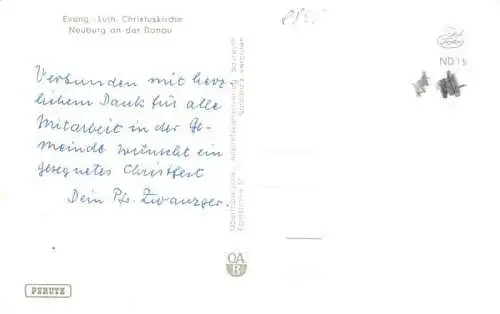 Evang.-Luth. Christuskirche
Neuburg an der Donau
Verbunden mit herz-
lichem Dank für alle
Mitarbeit in der Ge-
meinde wünscht ein
gesegnetes Christfest
Dein Pfr. Zwanzger.
PERUTZ
Nachdruck verboten
OA
B
ND 15